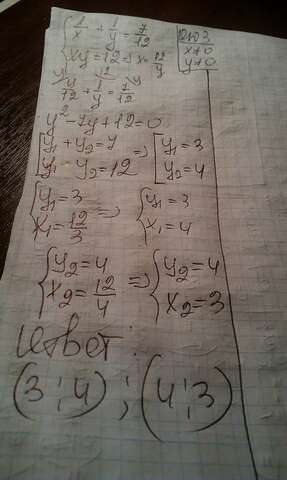 { 1/x + 1/y = 7/12
{ xy = 12 => x = 12/y
ОДЗ
x≠0
y≠0
y/12 + 1/y = 7/12
y² - 7y + 12 = 0
[ y₁ + y₂ = 7 => [ y₁ = 3
[ y₁ · y₂ = 12 [ y₂ = 4
{ y₁ = 3 => { y₁ = 3
{ x₁ = 12/3 { x₁ = 4
{ y₂ = 4 => { y₂ = 4
{ x₂ = 12/4 { x₂ = 3
Ответ:
(3;4);(4;3)